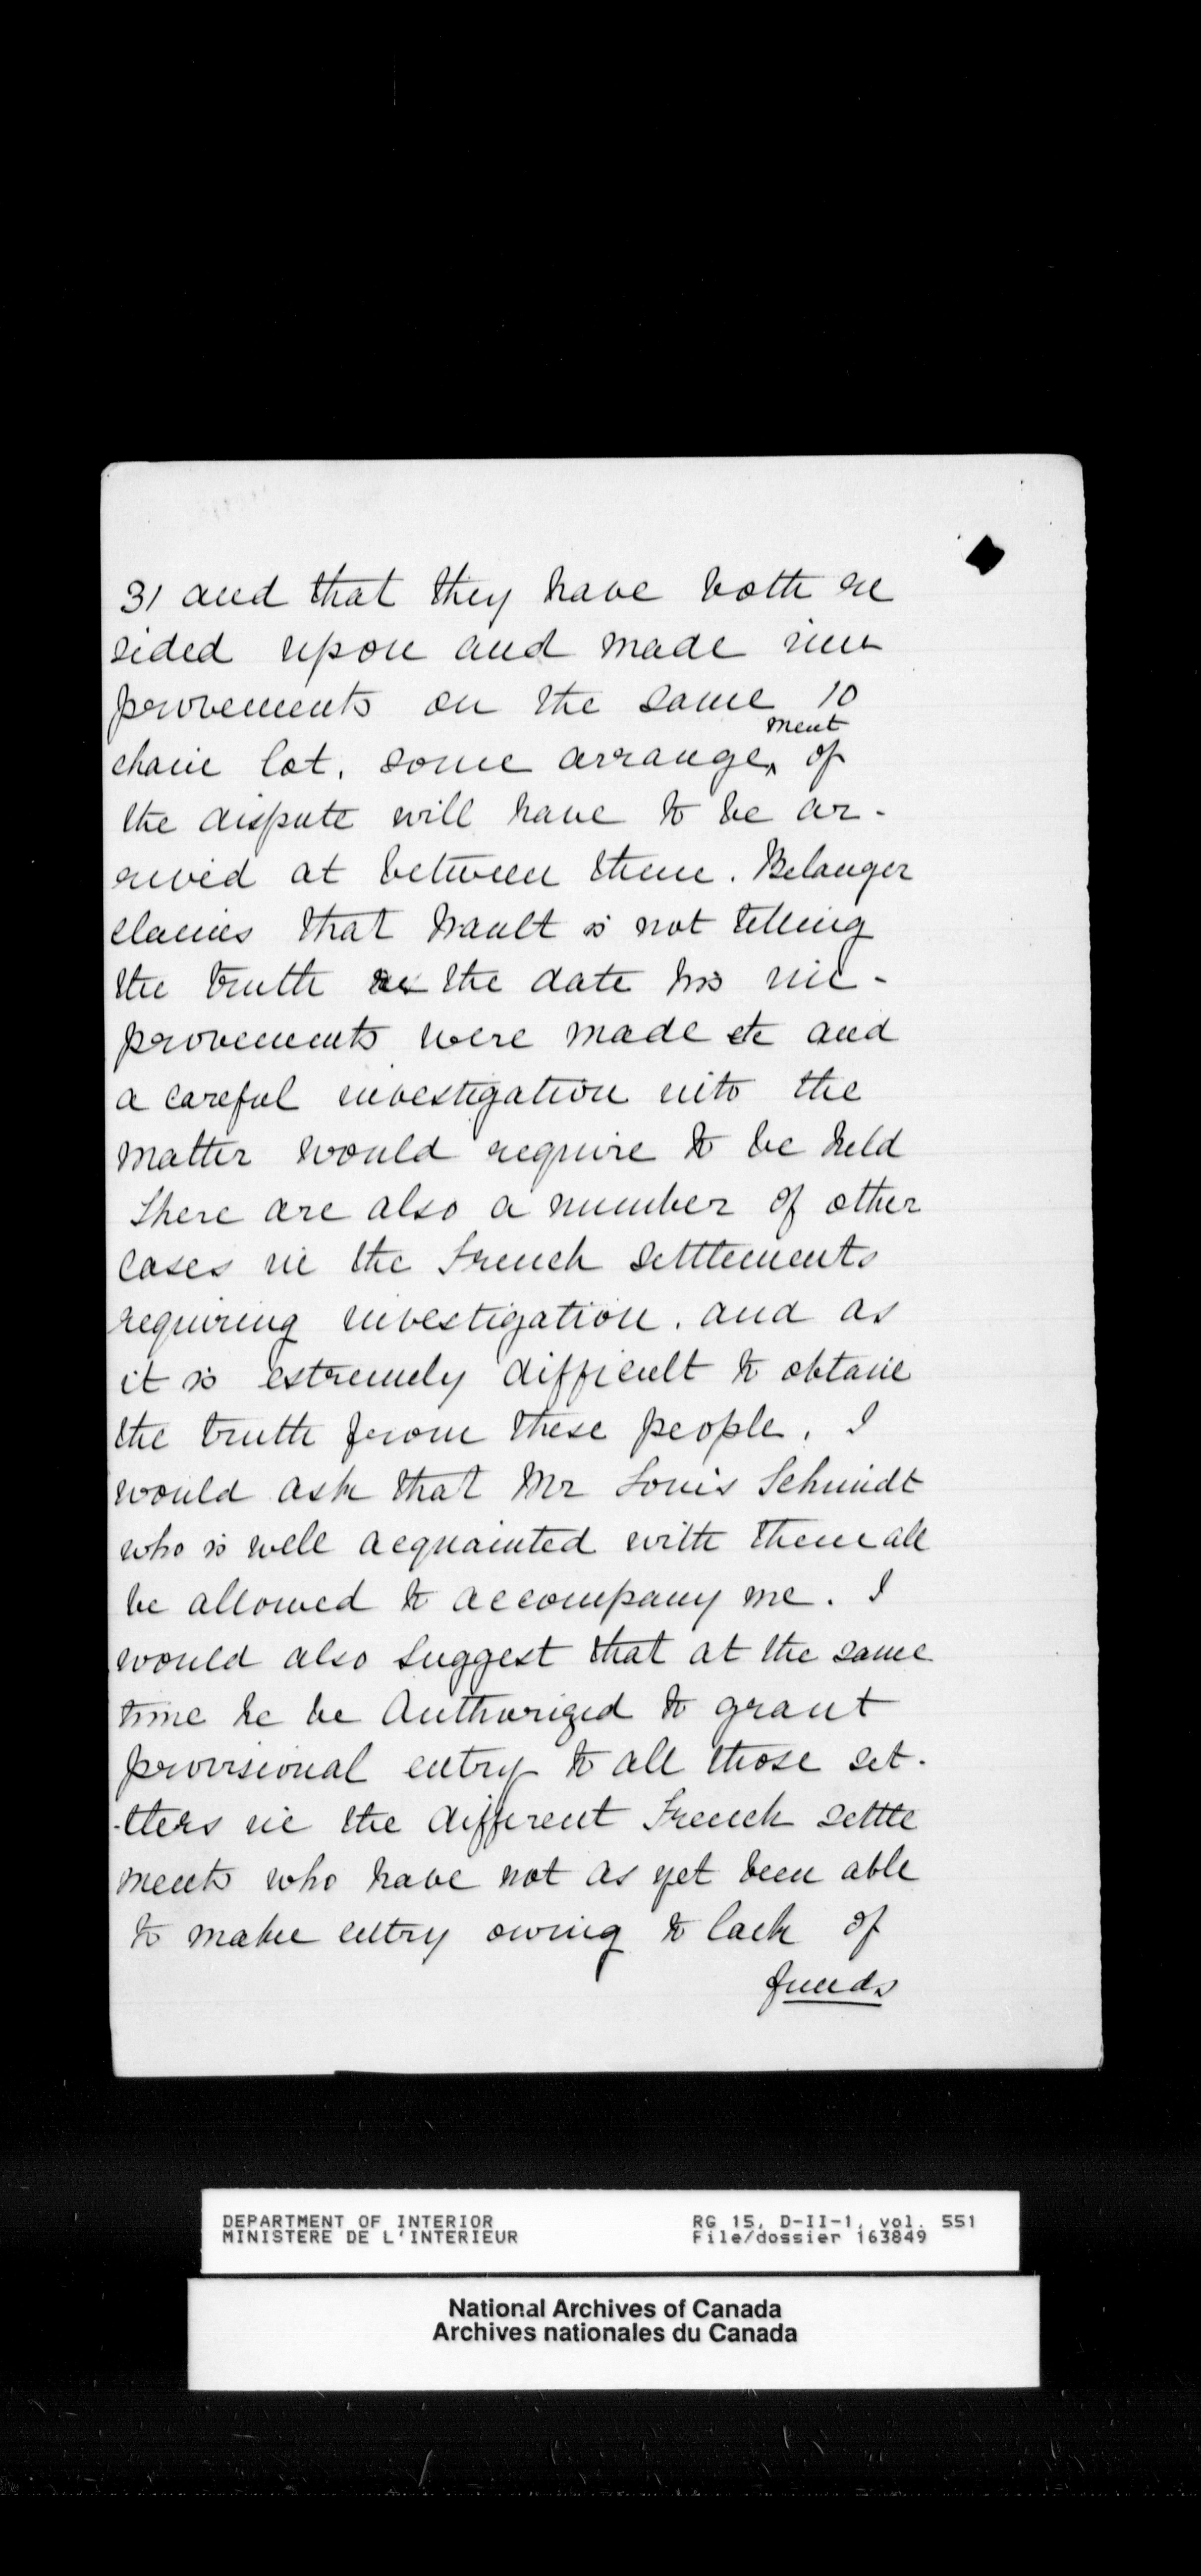 31 and that they have both re
sided upon and made im
provements on the same 10
chain lot, some arrangement of
the dispute will have to be ar-
rived at between them. Belanger
claims that hault is not telling
the truth re the date his im-
provements were made etc and
a careful investigation into the
matter would require to be held
There are also a number of other
cases in the French settlements
requiring investigation. and as
it is extremely difficult to obtain
the truth from these people, I
would ask that Mr Louis Schmidt
who is well acquainted with them all
be allowed to accompany me. I
would also suggest that at the same
time he be Authorized to grant
provisional entry to all those set-
-tlers in the different French settle
ments who have not as yet been able
to make entry owing to lack of
funds
DEPARTMENT OF INTERIOR
MINISTERE DE L'INTERIEUR
RG 15, D-II-1, vol. 551
File/dossier 163849
National Archives of Canada
Archives nationales du Canada